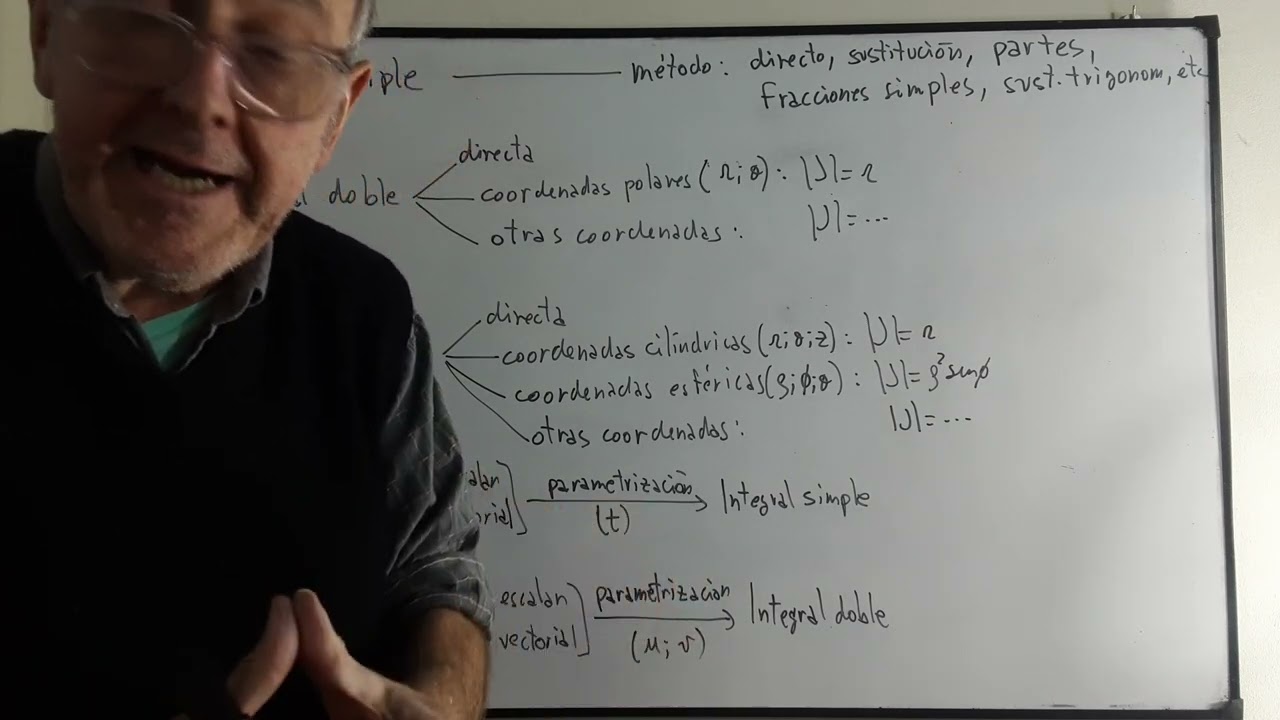 método: directo, sustitución, partes,
fracciones simples, sust. trigonom, etc
directa
doble
coordenadas polares (r; θ): |J| = r
otras coordenadas: |J| = ...
directa
coordenadas cilíndricas (r; θ; z): |J| = r
coordenadas esféricas (ρ; ϕ; θ): |J| = ρ² senϕ
otras coordenadas: |J| = ...
parametrización
(t)
Integral simple
escalar
vectorial
parametrización
(u; v)
Integral doble